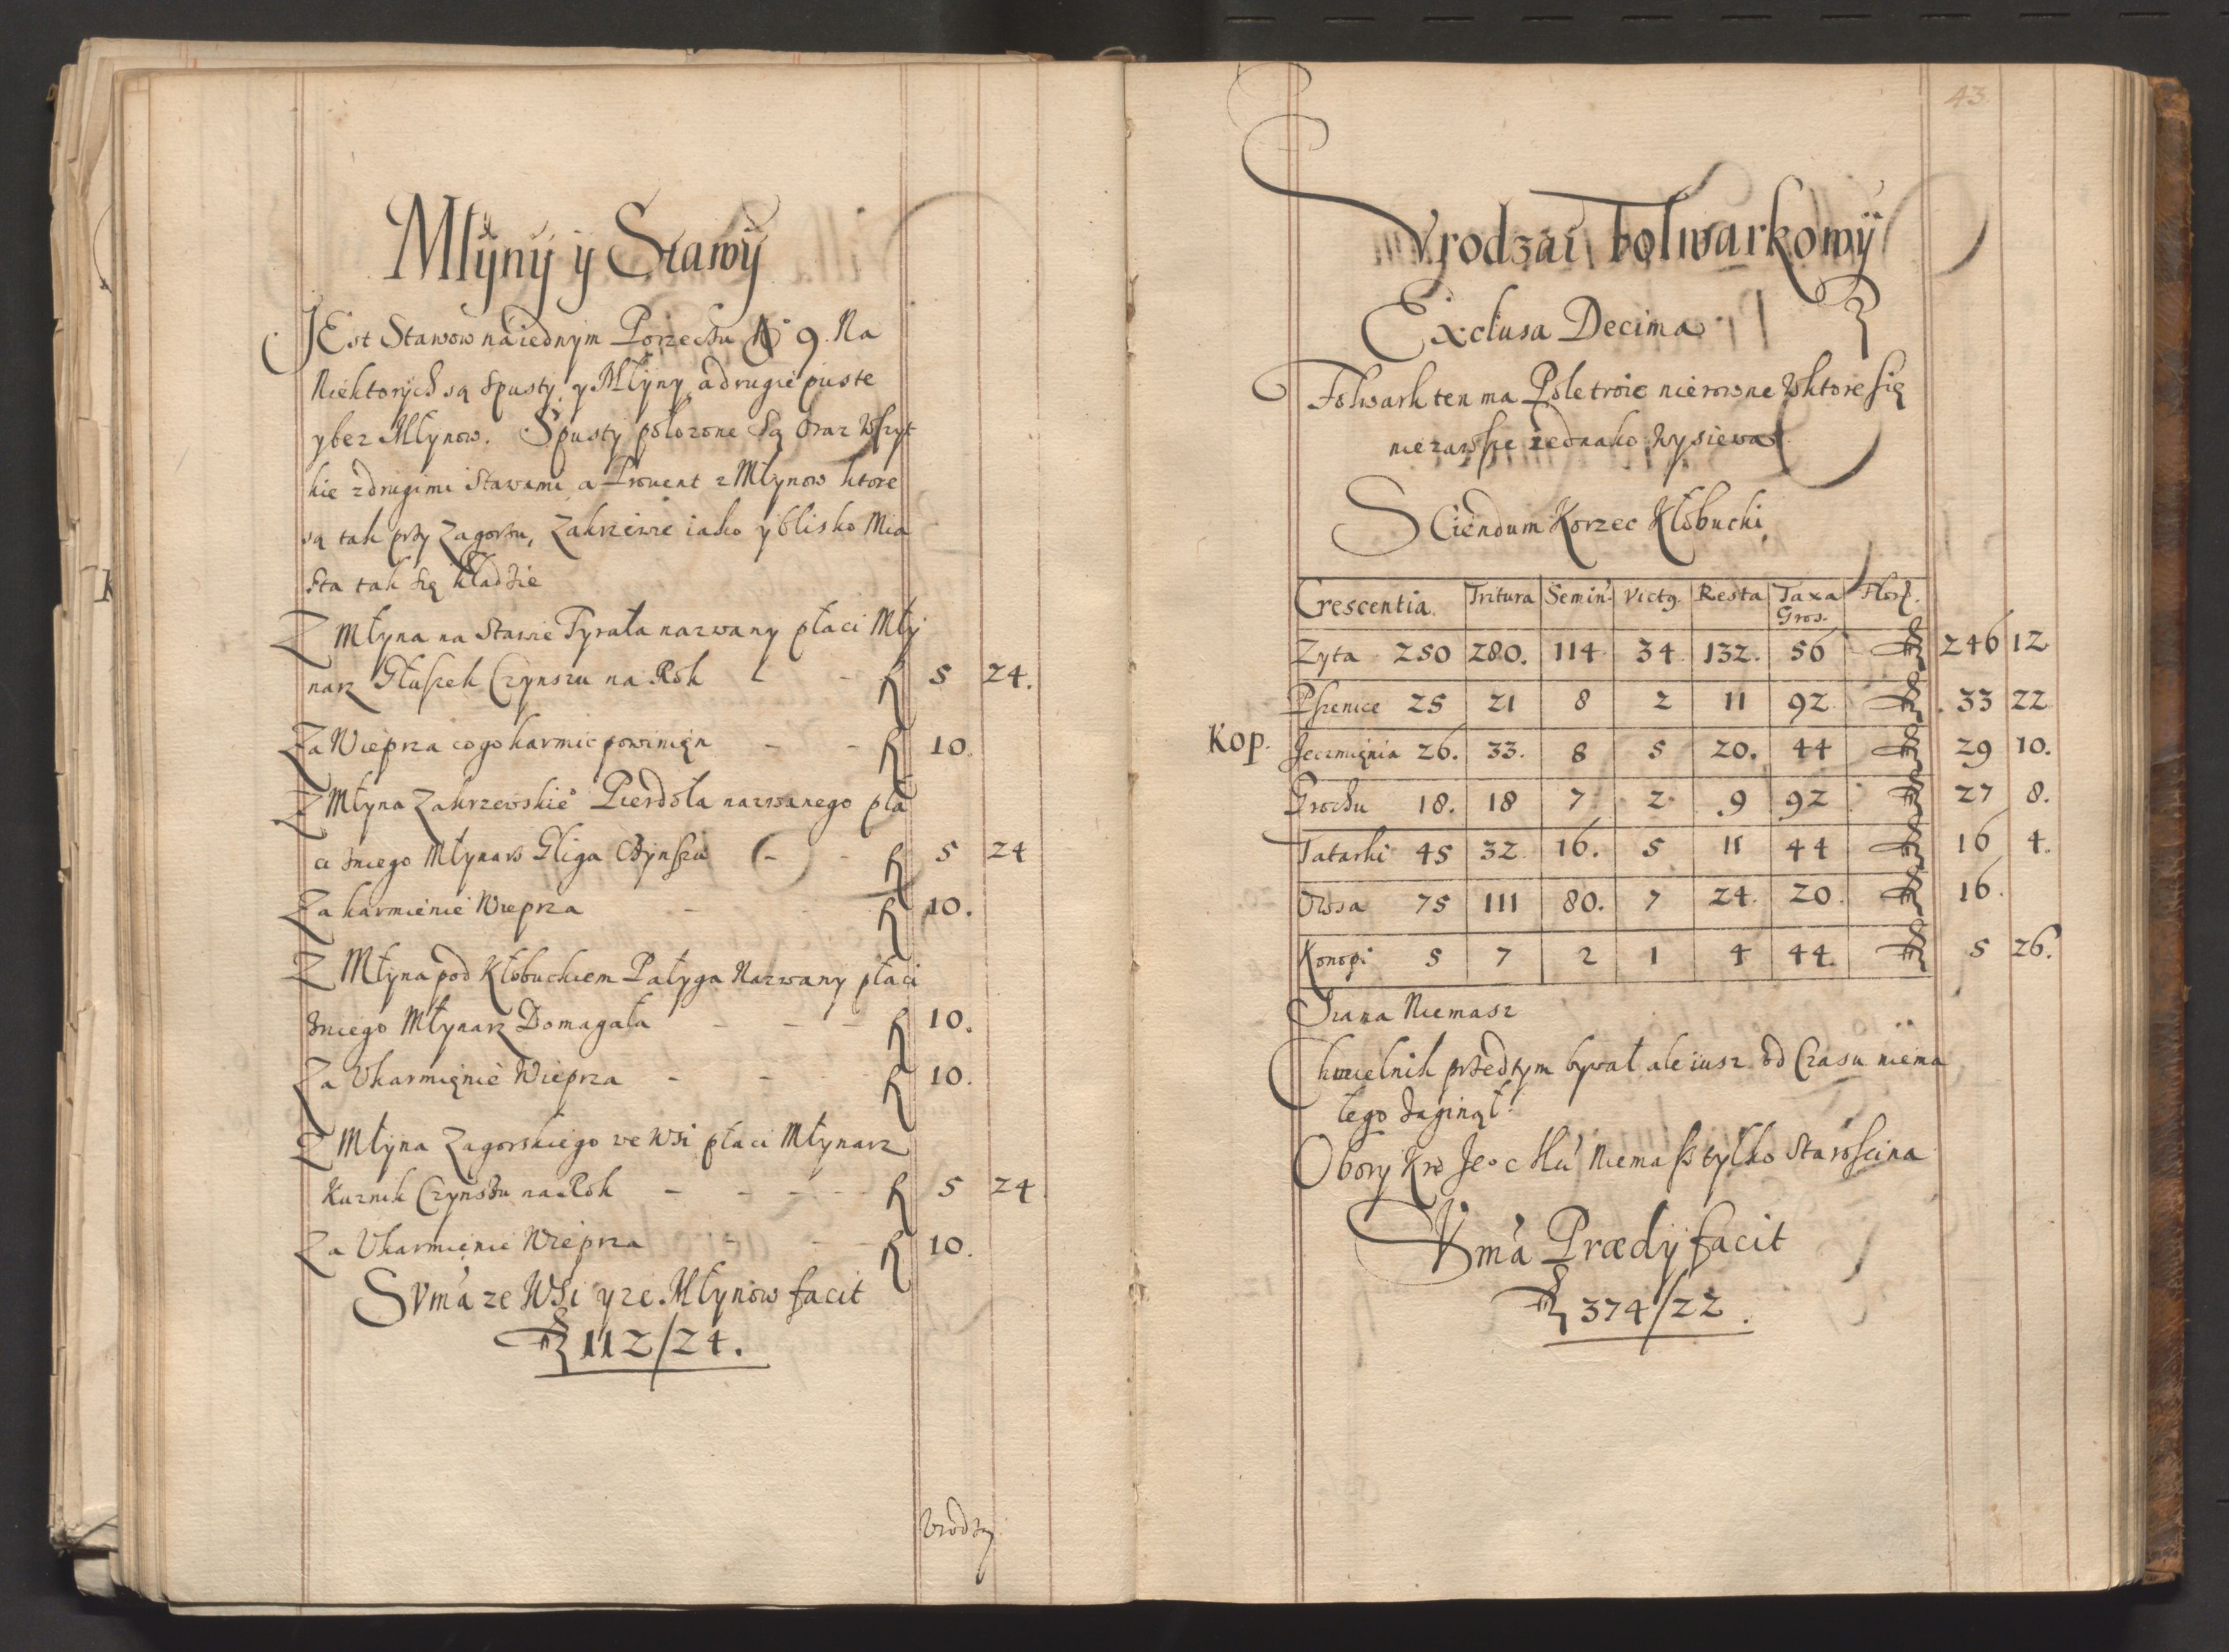 Młÿnÿ ÿ Stawÿ
JEst Stawow na iednÿm Porzeczu No 9. Na
Niektorÿch są Spustÿ y Młÿnÿ, a drugie puste
y bez Młynow. Spusty połozone są oraz wszyt
kie z drugimi Stawami a Prouent z Młynow ktore
są tak przy Zagorzu, Zakrzewie iako y blisko Mia
sta tak się kładzie
Z Młyna na Stawie Tyrała nazwany płaci Młÿ
narz Głuszek Czynszu na Rok - - 5 24.
Za Wieprza co go karmic powinięn - - 10.
Z Młyna Zakrzewskieo Pierdoła nazwanego pła
ci zniego Młynarz Gliga Czynszu - - 5 24
Za karmienie Wieprza - - 10.
Z Młÿna pod Kłobuckiem Pałyga Nazwany płaci
zniego Młynarz Domagała - - - 10.
Za Vkarmięnie Wieprza - - 10.
Z Młÿna Zagorskiego we Wsi płaci Młynarz
Kuznik Czynszu na Rok - - - - 5 24
Za Vkarmięnie Wieprza - - - 10.
SVmá ze WSi y ze Młynow facit
112/24.
Vrodzaj
43
Vrodzai Folwarkowÿ
Exclusa Decima
Folwark ten ma Pole troie nierowne w ktore się
nie zawsze iednako wysiewa
SCiendum Korzec Kłobucki
Crescentia. Tritura Semin: Victq. Resta Taxa Gros. Flor.
Zyta 250 280. 114. 34. 132. 56 246 12
Pszenice 25 21 8 2 11 92 33 22
Kop. Jęczmięnia 26. 33. 8 5 20. 44 29 10.
Grochu 18. 18 7 2 9 92 27 8.
Tatarki 45 32 16. 5 11 44 16 4.
Owsa 75 111 80. 7 24. 20. 16.
Konopi 5 7 2 1 4 44. 5 26.
Siana Niemasz
Chmielnik przedtym bywał ale iusz od Czasu niema
łego zaginął.
Obory Kro Jeo Mći Niemasz tylko Starościna
SVmá Prædÿ facit
374/22.